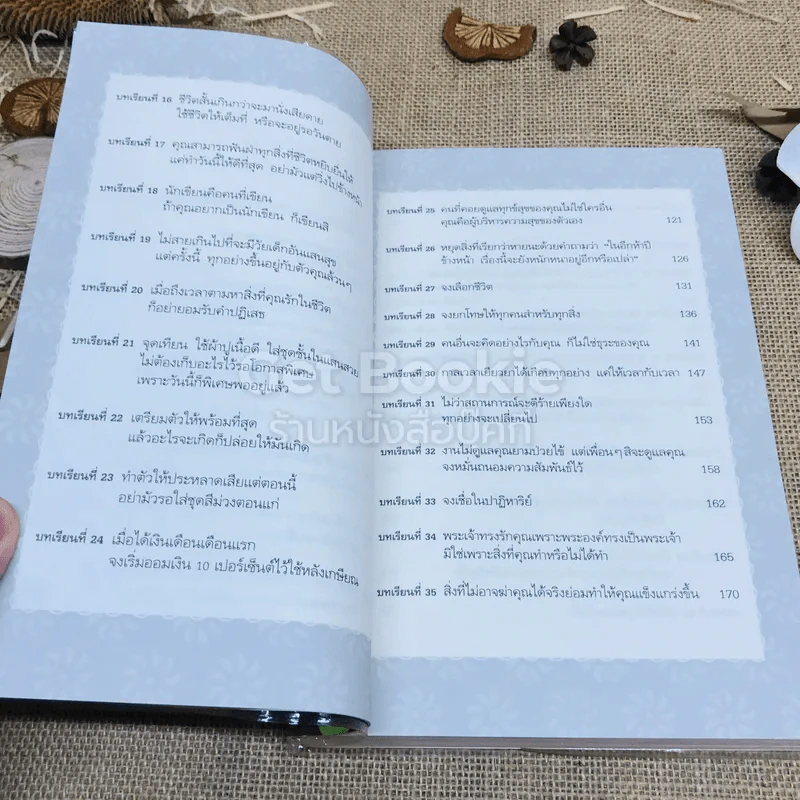 บทเรียนที่ 16 ชีวิตสั้นเกินกว่าจะมานั่งเสียดาย
ใช้ชีวิตให้เต็มที่ หรือจะอยู่รอวันตาย
บทเรียนที่ 17 คุณสามารถฟันฝ่าทุกสิ่งที่ชีวิตหยิบยื่นให้
แค่ทำวันนี้ให้ดีที่สุด อย่ามัวแต่วิ่งไปข้างหน้า
บทเรียนที่ 18 นักเขียนคือคนที่เขียน
ถ้าคุณอยากเป็นนักเขียน ก็เขียนสิ
บทเรียนที่ 19 ไม่สายเกินไปที่จะมีวัยเด็กอันแสนสุข
แต่ครั้งนี้ ทุกอย่างขึ้นอยู่กับตัวคุณล้วนๆ
บทเรียนที่ 20 เมื่อถึงเวลาตามหาสิ่งที่คุณรักในชีวิต
ก็อย่ายอมรับคำปฏิเสธ
บทเรียนที่ 21 จุดเทียน ใช้ผ้าปูเนื้อดี ใส่ชุดชั้นในแสนสวย
ไม่ต้องเก็บอะไรไว้รอโอกาสพิเศษ
เพราะวันนี้ก็พิเศษพออยู่แล้ว
บทเรียนที่ 22 เตรียมตัวให้พร้อมที่สุด
แล้วอะไรจะเกิดก็ปล่อยให้มันเกิด
บทเรียนที่ 23 ทำตัวให้ประหลาดเสียแต่ตอนนี้
อย่ามัวรอใส่ชุดสีม่วงตอนแก่
บทเรียนที่ 24 เมื่อได้เงินเดือนเดือนแรก
จงเริ่มออมเงิน 10 เปอร์เซ็นต์ไว้ใช้หลังเกษียณ
บทเรียนที่ 25 คนที่คอยดูแลทุกข์สุขของคุณไม่ใช่ใครอื่น
คุณคือผู้บริหารความสุขของตัวเอง 121
บทเรียนที่ 26 หยุดสิ่งที่เรียกว่าหายนะด้วยคำถามว่า "ในอีกห้าปี
ข้างหน้า เรื่องนี้จะยังหนักหนาอยู่อีกหรือเปล่า" 126
บทเรียนที่ 27 จงเลือกชีวิต 131
บทเรียนที่ 28 จงยกโทษให้ทุกคนสำหรับทุกสิ่ง 136
บทเรียนที่ 29 คนอื่นจะคิดอย่างไรกับคุณ ก็ไม่ใช่ธุระของคุณ 141
บทเรียนที่ 30 กาลเวลาเยียวยาได้เกือบทุกอย่าง แค่ให้เวลากับเวลา 147
บทเรียนที่ 31 ไม่ว่าสถานการณ์จะดีร้ายเพียงใด
ทุกอย่างจะเปลี่ยนไป 153
บทเรียนที่ 32 งานไม่ดูแลคุณยามป่วยไข้ แต่เพื่อนๆ สิจะดูแลคุณ
จงหมั่นถนอมความสัมพันธ์ไว้ 158
บทเรียนที่ 33 จงเชื่อในปาฏิหาริย์ 162
บทเรียนที่ 34 พระเจ้าทรงรักคุณเพราะพระองค์ทรงเป็นพระเจ้า
มิใช่เพราะสิ่งที่คุณทำหรือไม่ได้ทำ 165
บทเรียนที่ 35 สิ่งที่ไม่อาจฆ่าคุณได้จริงย่อมทำให้คุณแข็งแกร่งขึ้น 170
Get Bookie
ร้านหนังสือบุ๊คกี้